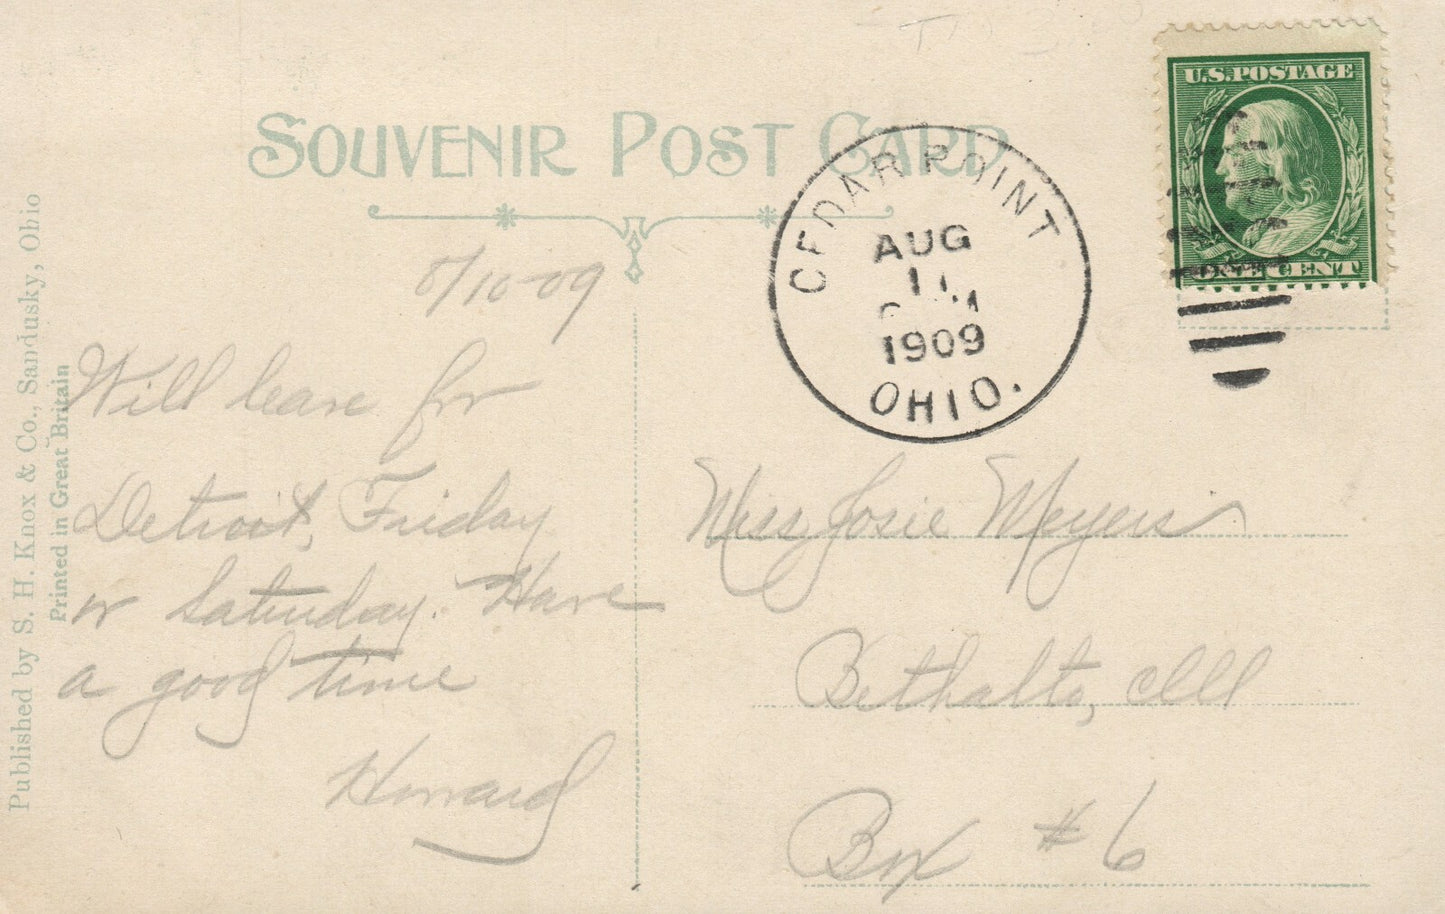 SOUVENIR POST CARD
U.S. POSTAGE
CENT
CEDAR POINT
AUG
11
1909
OHIO.
8/10-09
Will leave for
Detroit, Friday
or Saturday. Have
a good time
Howard
Miss Josie Meyers
Bethalto, Ill
Box #6
Published by S. H. Knox & Co., Sandusky, Ohio
Printed in Great Britain